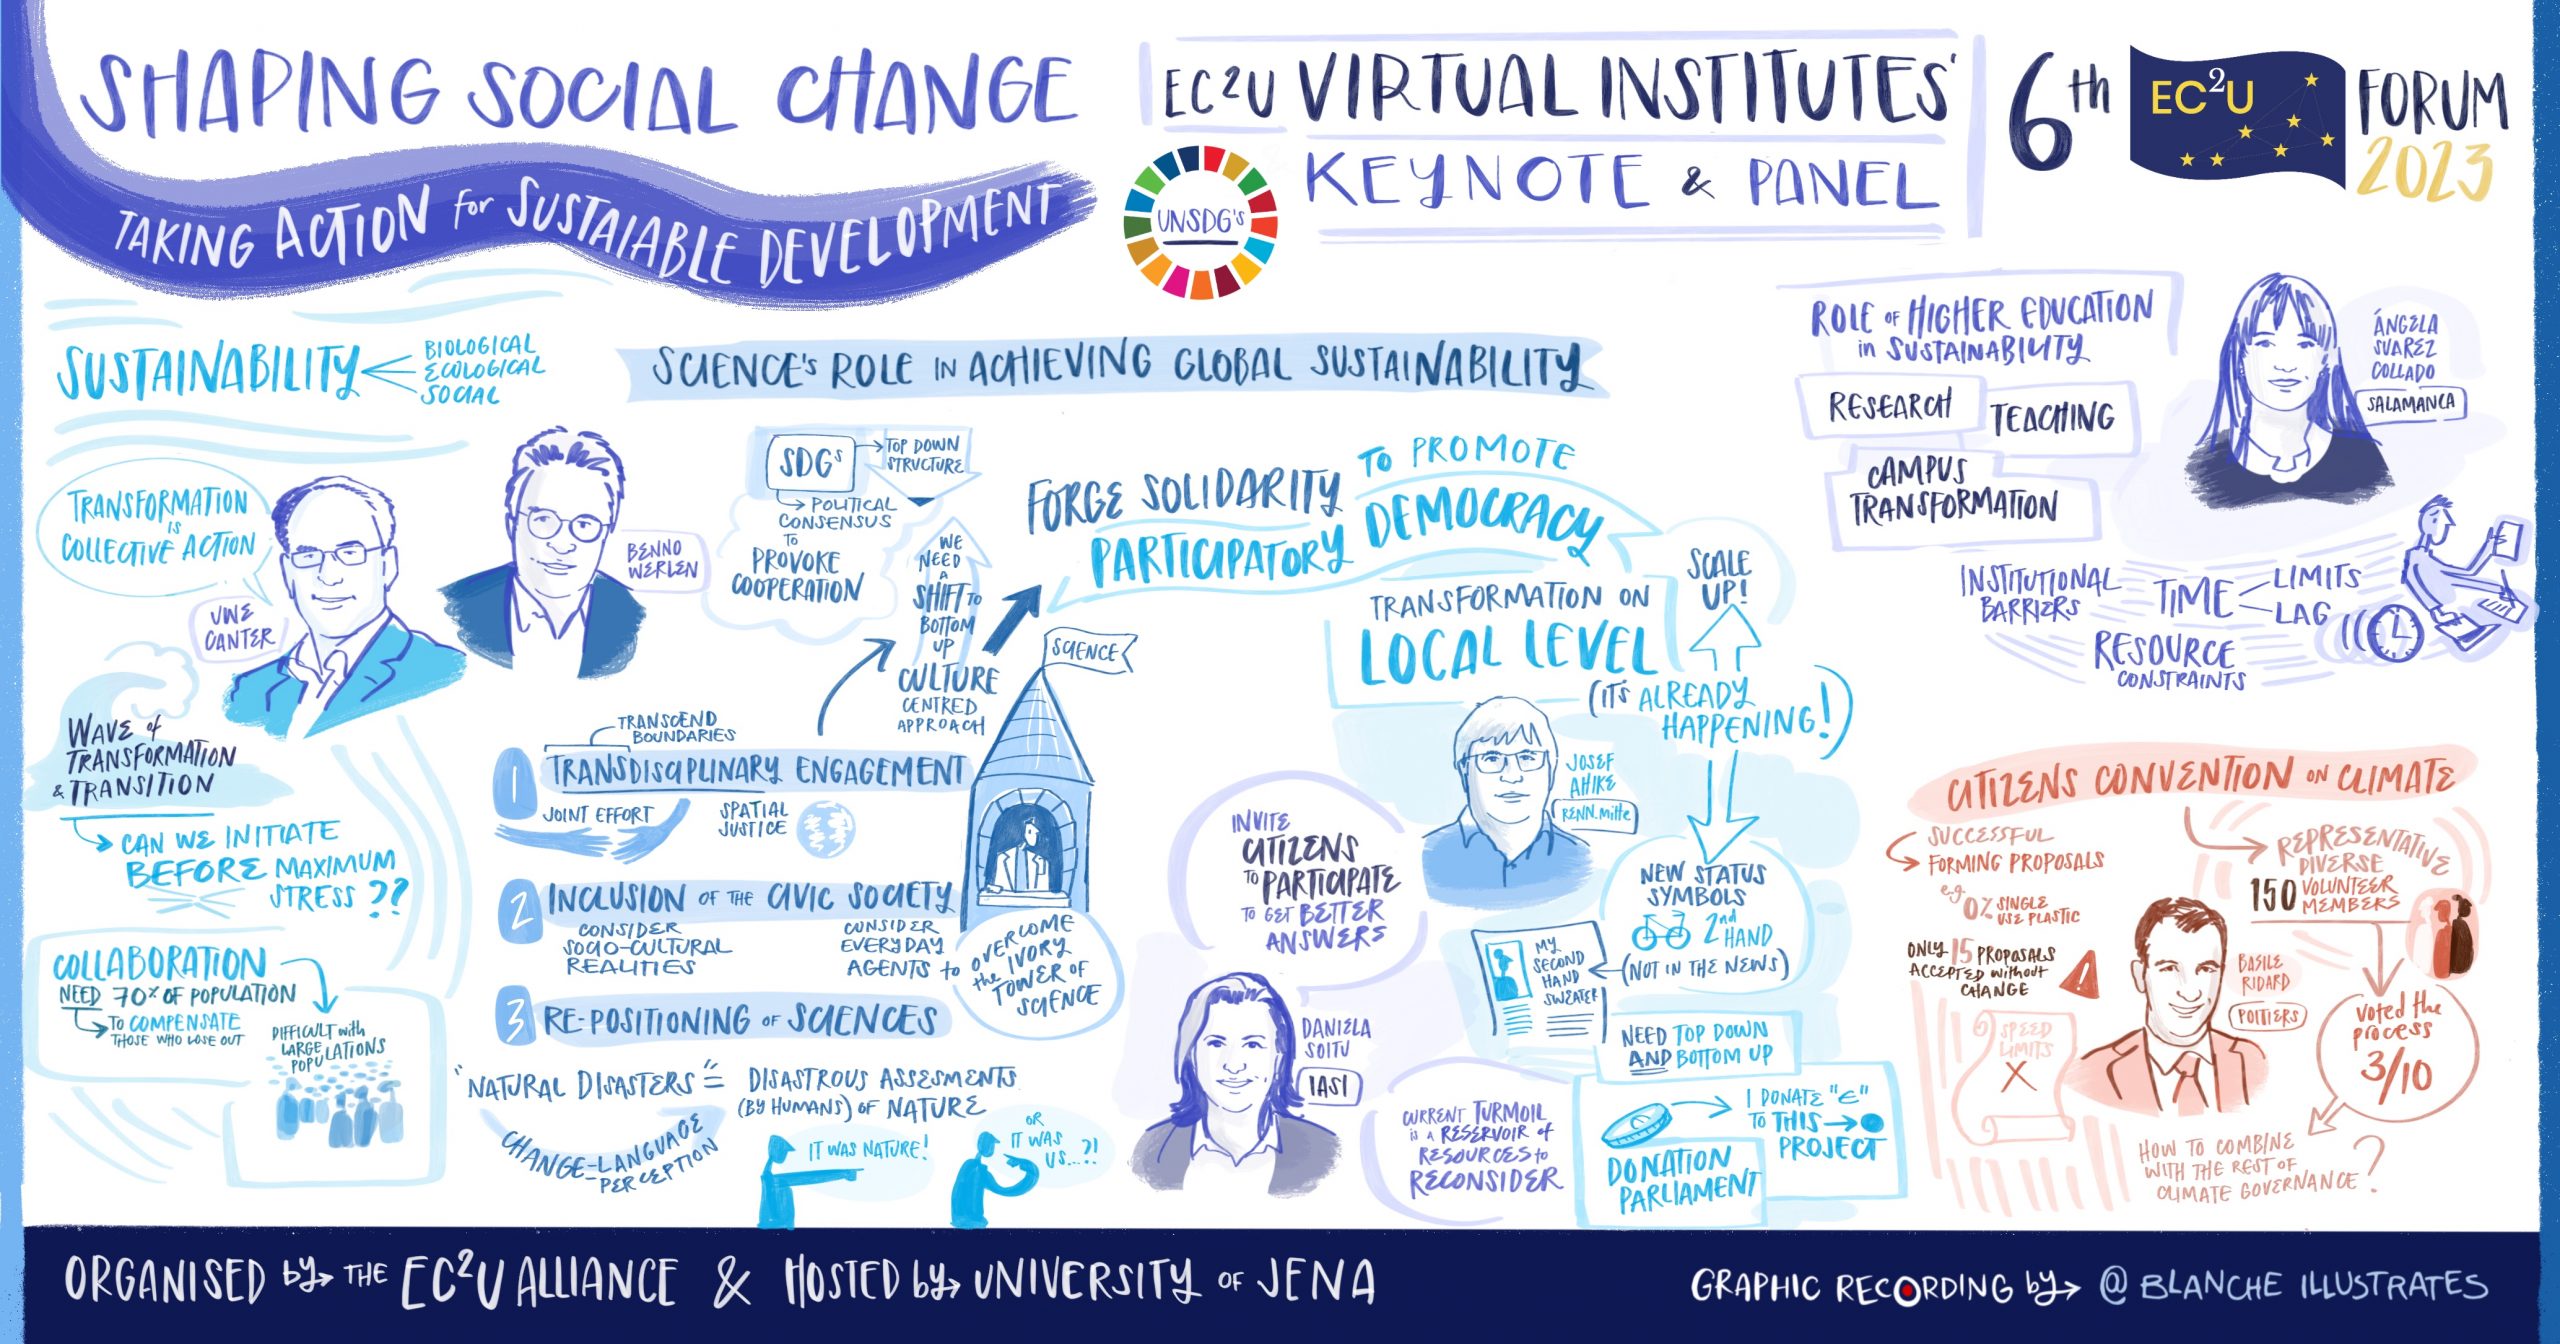 SHAPING SOCIAL CHANGE
TAKING ACTION for SUSTAIABLE DEVELOPMENT
EC2U VIRTUAL INSTITUTES'
KEYNOTE & PANEL
UNSDG's
6th
EC2U
FORUM
2023
SUSTAINABILITY
BIOLOGICAL
ECOLOGICAL
SOCIAL
TRANSFORMATION
IS
COLLECTIVE ACTION
UWE
CANTER
BENNO
WERLEN
WAVE of
TRANSFORMATION
& TRANSITION
CAN WE INITIATE
BEFORE MAXIMUM
STRESS ??
COLLABORATION
NEED 70% OF POPULATION
TO COMPENSATE
THOSE WHO LOSE OUT
DIFFICULT with
LARGE
POPULATIONS
SCIENCE'S ROLE IN ACHIEVING GLOBAL SUSTAINABILITY
SDGs
TOP DOWN
STRUCTURE
POLITICAL
CONSENSUS
TO
PROVOKE
COOPERATION
WE
NEED
A
SHIFT TO
BOTTOM
UP
CULTURE
CENTRED
APPROACH
FORGE SOLIDARITY
TO PROMOTE
PARTICIPATORY DEMOCRACY
SCIENCE
TRANSCEND
BOUNDARIES
1 TRANSDISCIPLINARY ENGAGEMENT
JOINT EFFORT
SPATIAL
JUSTICE
2 INCLUSION OF THE CIVIC SOCIETY
CONSIDER
SOCIO-CULTURAL
REALITIES
CONSIDER
EVERYDAY
AGENTS to
OVERCOME
the IVORY
TOWER OF
SCIENCE
3 RE-POSITIONING OF SCIENCES
"NATURAL DISASTERS" =
DISASTROUS ASSESMENTS
(BY HUMANS) OF NATURE
CHANGE-LANGUAGE
PERCEPTION
IT WAS NATURE!
OR
IT WAS
US...?!
TRANSFORMATION ON
LOCAL LEVEL
SCALE
UP!
(IT'S ALREADY
HAPPENING!)
JOSEF
AHIKE
RENN.mitte
INVITE
CITIZENS
TO PARTICIPATE
TO GET BETTER
ANSWERS
DANIELA
SOITU
IASI
CURRENT TURMOIL
is a RESERVOIR of
RESOURCES to
RECONSIDER
NEW STATUS
SYMBOLS
2nd
HAND
(NOT IN THE NEWS)
MY
SECOND
HAND
SWEATER
NEED TOP DOWN
AND BOTTOM UP
DONATION
PARLIAMENT
I DONATE "€"
TO THIS
PROJECT
ROLE OF HIGHER EDUCATION
in SUSTAINABILITY
RESEARCH
TEACHING
CAMPUS
TRANSFORMATION
ÁNGELA
SUAREZ
COLLADO
SALAMANCA
INSTITUTIONAL
BARRIERS
TIME
LIMITS
LAG
RESOURCE
CONSTRAINTS
CITIZENS CONVENTION ON CLIMATE
SUCCESSFUL
FORMING PROPOSALS
e.g.
0% SINGLE
USE PLASTIC
ONLY 15 PROPOSALS
ACCEPTED without
CHANGE
!
SPEED
LIMITS
X
REPRESENTATIVE
DIVERSE
150 VOLUNTEER
MEMBERS
BASILE
RIDARD
POITIERS
Voted the
process
3/10
HOW TO COMBINE
WITH THE REST OF
CLIMATE GOVERNANCE?
ORGANISED by THE EC2U ALLIANCE & HOSTED by UNIVERSITY OF JENA
GRAPHIC RECORDING by @ BLANCHE ILLUSTRATES